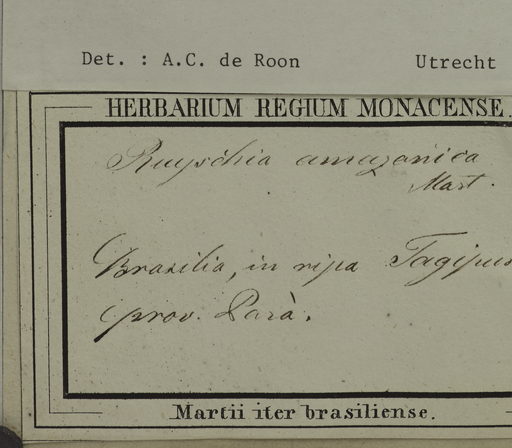 Det. : A.C. de Roon Utrecht
HERBARIUM REGIUM MONACENSE.
Ruyschia amazonica
Mart.
Brasilia, in ripa
prov. Parà.
Martii iter brasiliense.